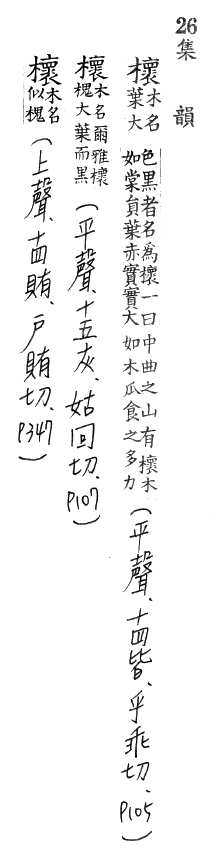 26集 韻
櫰木名葉大色黑者名為櫰一曰中曲之山有櫰木如棠員葉赤實實大如木瓜食之多力(平聲、十四皆、乎乖切、P105)
櫰木名爾雅櫰槐大葉而黑(平聲、十五灰、姑回切、P107)
櫰木名似槐(上聲、十四賄、戶賄切、P347)